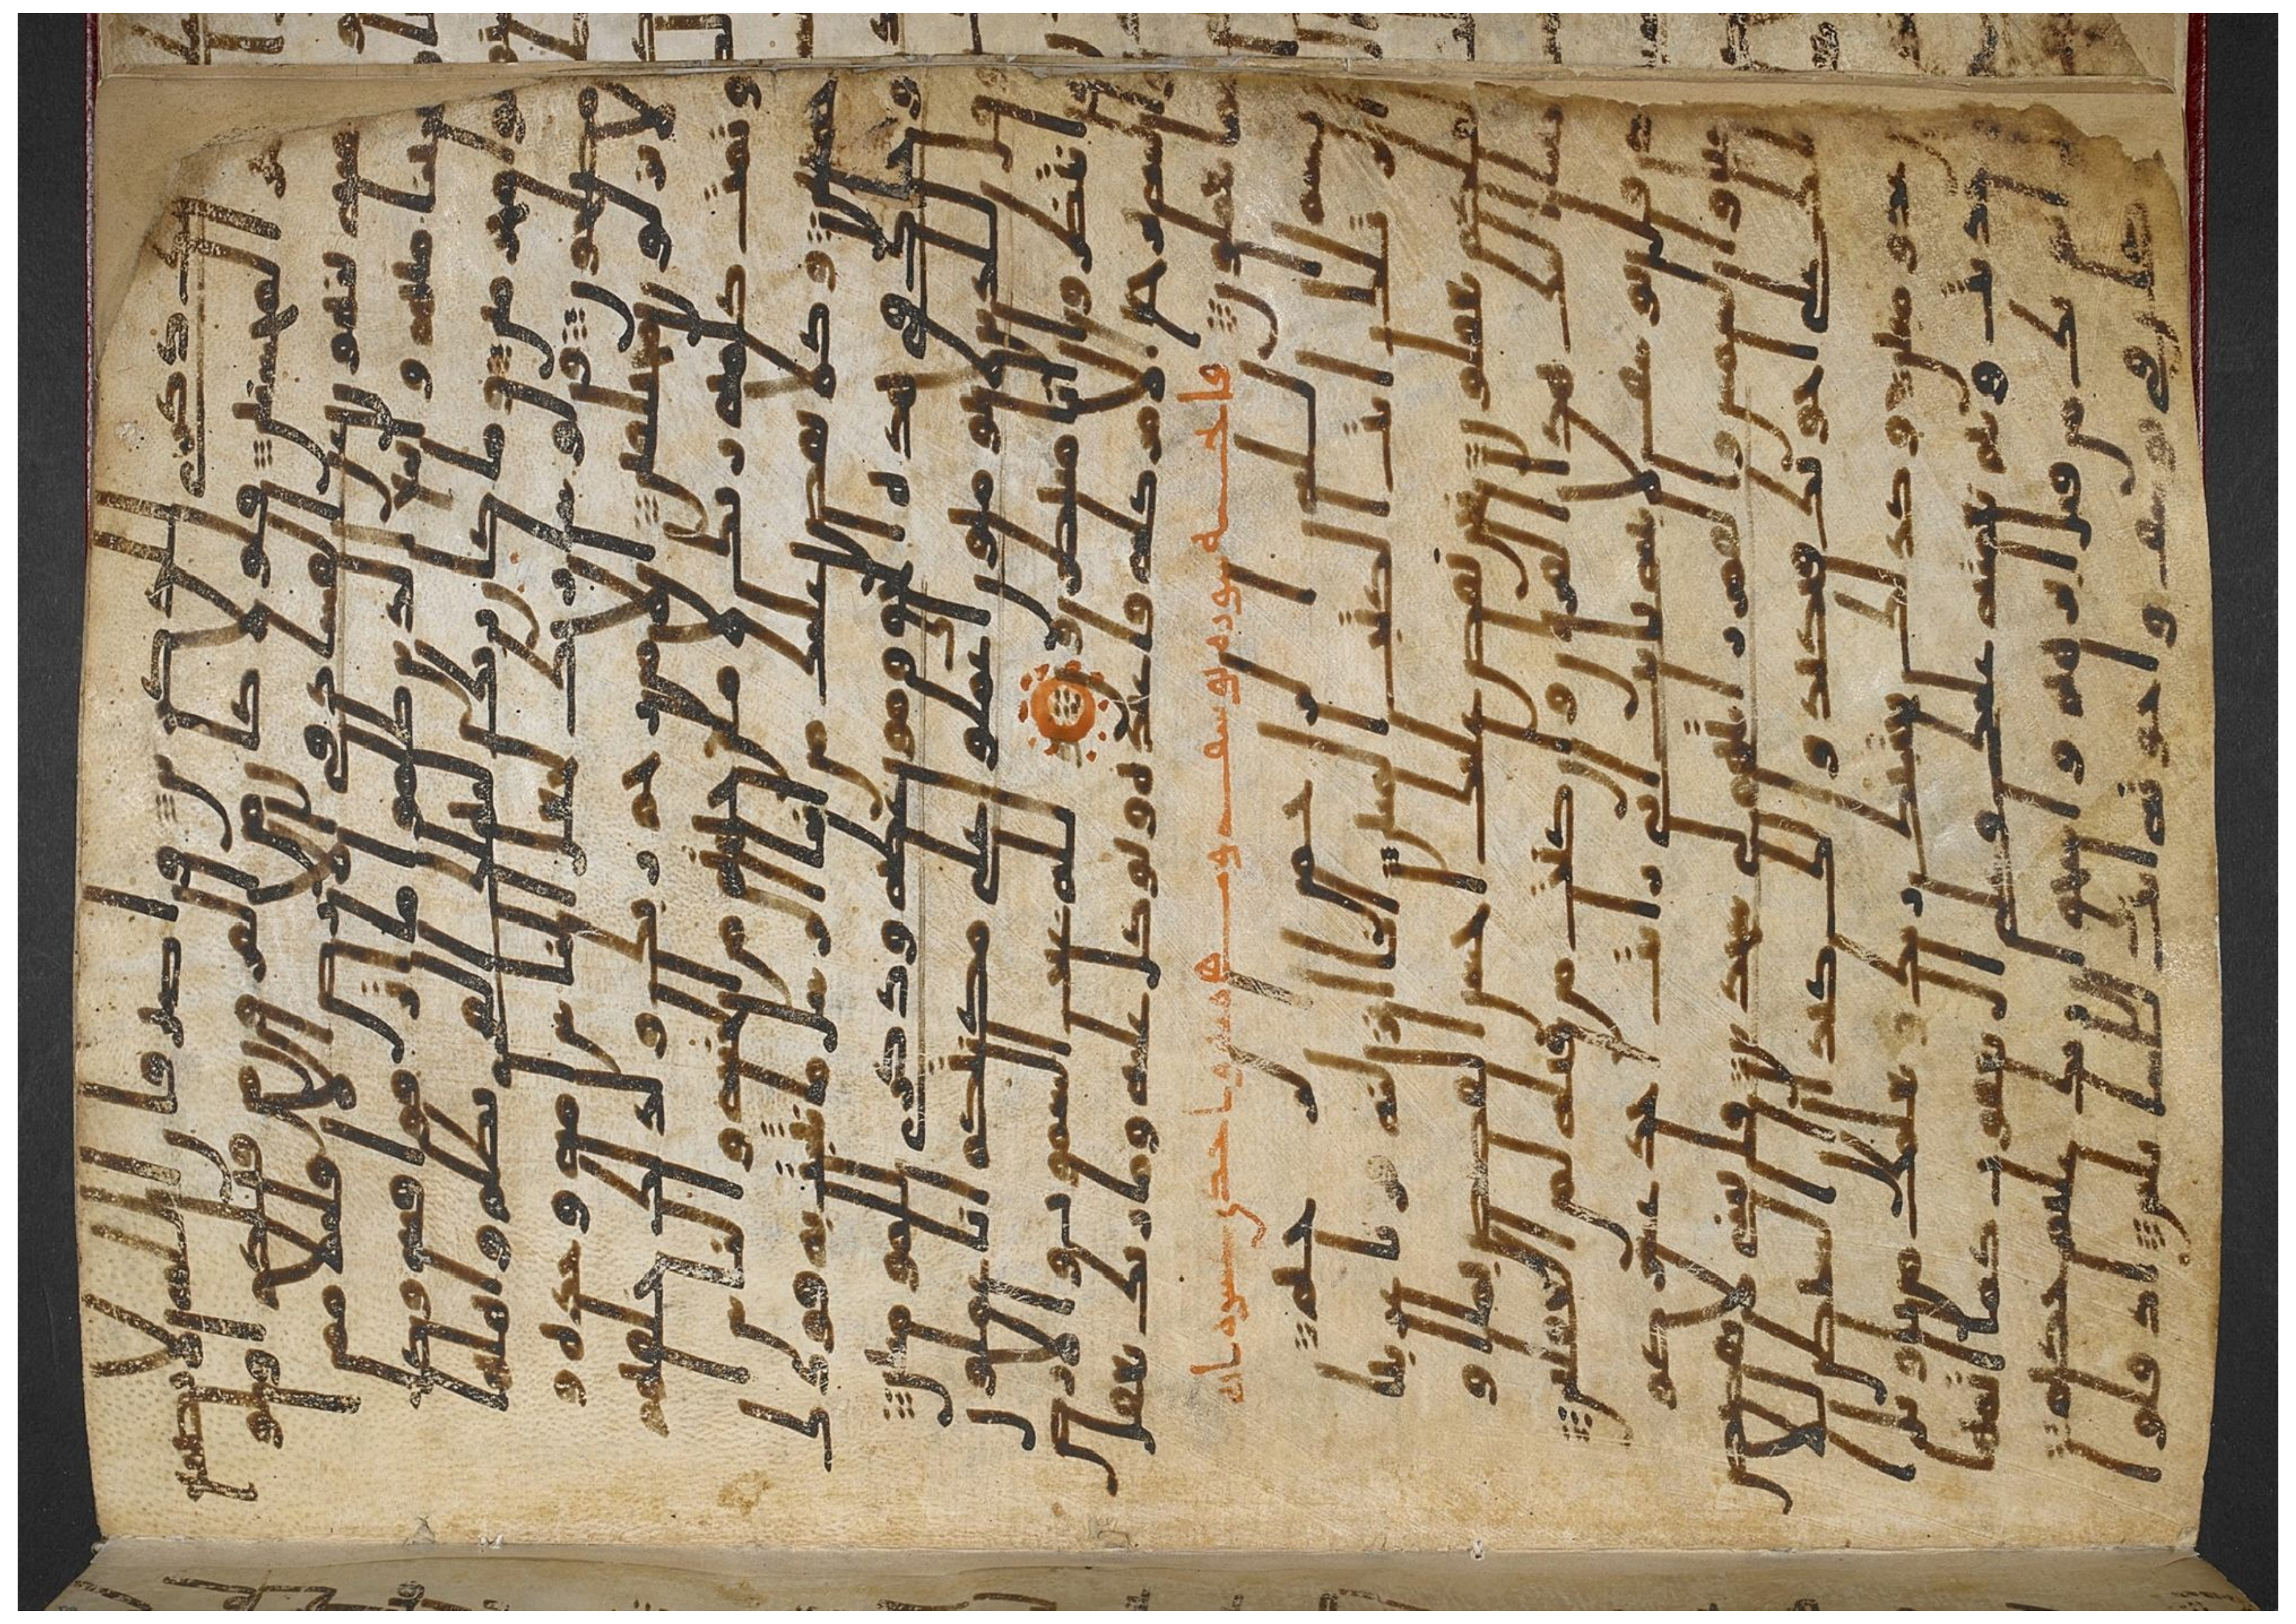 ذلك ذكرى للذكرين واصبر فان الله لا يضيع
اجر المحسنين فلولا كان من القرون من قبلكم اولوا
بقية ينهون عن الفساد في الارض الا قليلا ممن
انجينا منهم واتبع الذين ظلموا ما اترفوا فيه وكا
نوا مجرمين وما كان ربك ليهلك القرى بظلم واهلها
مصلحون ولو شا ربك لجعل الناس امة وحدة و
لا يزالون مختلفين الا من رحم ربك ولذلك خلقهم
وتمت كلمة ربك لاملن جهنم من الجنة والناس
اجمعين وكلا نقص عليك من انبا الرسل ما نثبت به فودك
وجاك في هذه الحق وموعظة وذكرى للمومنين
وقل للذين لا يومنون اعملوا على مكنتكم انا عملون
وانتظروا انا منتظرون ولله غيب السموت والارض
واليه يرجع الامر كله فاعبده وتوكل عليه وما ربك بغفل
عما تعملون فاتحه سوره يوسف وهي واحدى عشر
بسم الله الرحمن الرحيم
الر تلك ايت الكتب المبين انا انزلنه قرنا عربيا
لعلكم تعقلون نحن نقص عليك احسن القصص بما او
حينا اليك هذا القرن وان كنت من قبله لمن الغفلين
اذ قال يوسف لابيه يابت اني رايت احد عشر كو
كبا والشمس والقمر رايتهم لي سجدين قال يبني لا تقصص
رياك على اخوتك فيكيدوا لك كيدا ان الشيطن للانسن
عدو مبين وكذلك يجتبيك ربك ويعلمك من تاويل ا
لاحديث ويتم نعمته عليك وعلى ال يعقوب كما اتمها
على ابويك من قبل ابرهيم واسحق ان ربك عليم حكيم
لقد كان في يوسف واخوته ايت للسايلين اذ قالوا